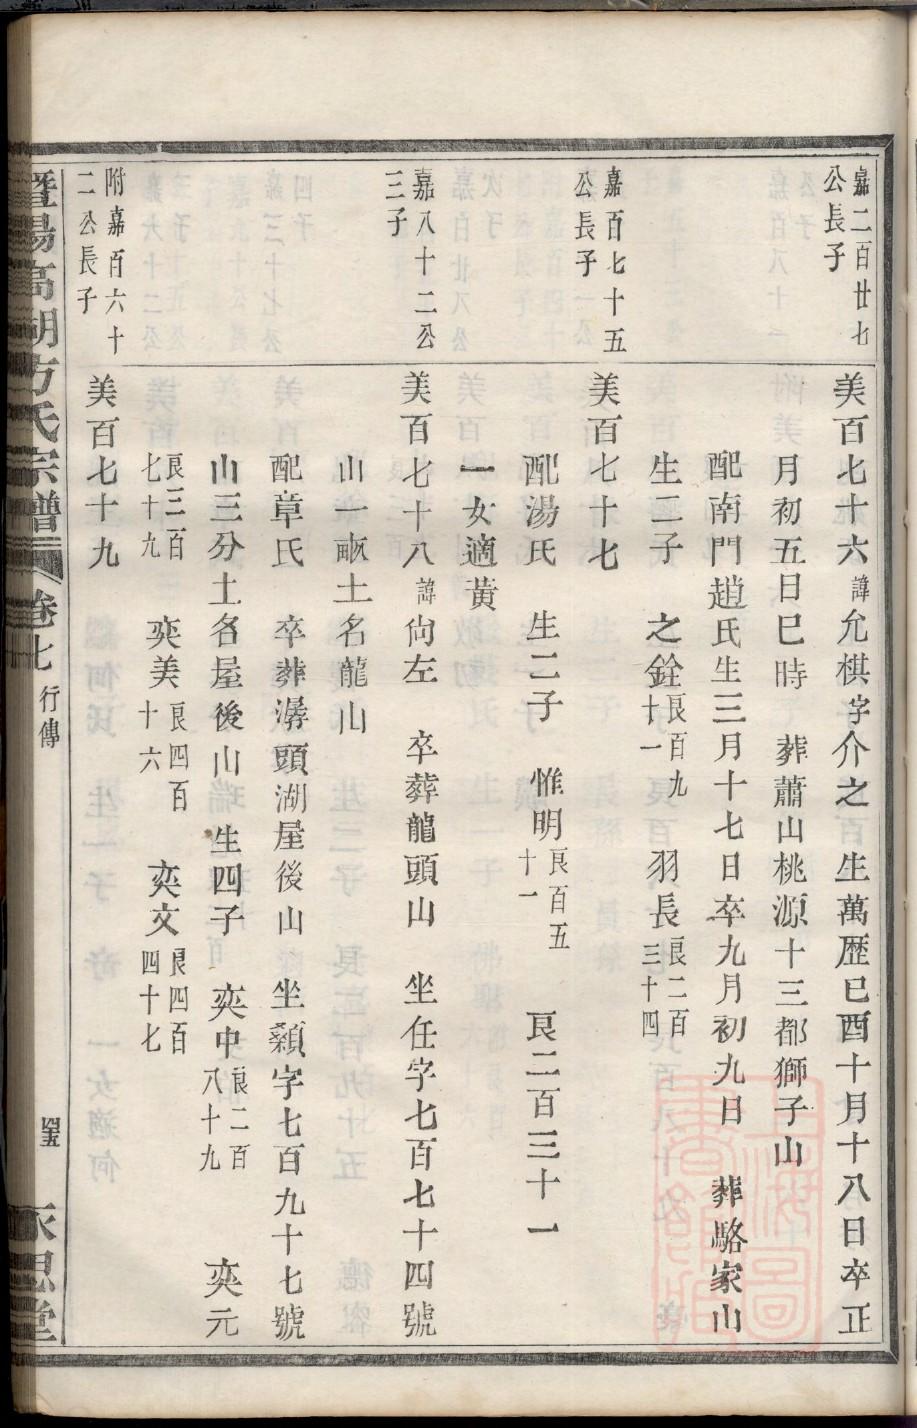 嘉二百廿七
公長子
美百七十六諱允棋字介之 生萬歷巳酉十月十八日卒正
月初五日巳時 葬蕭山桃源十三都獅子山
配南門趙氏生三月十七日卒九月初九日 葬駱家山
生二子 之銓良百九十一 羽長良二百三十四
嘉百七十五
公長子
美百七十七
配湯氏 生二子 惟明良百五十一 良二百三十一
一女適黃
嘉八十二公
三子
美百七十八諱尙左 卒葬龍頭山 坐任字七百七十四號
山一畝土名龍山
配章氏 卒葬潺頭湖屋後山 坐顙字七百九十七號
山三分土名屋後山 生四子 奕中良二百八十九 奕元
良三百七十九 奕美良四百十六 奕文良四百四十七
附嘉百六十
二公長子
美百七十九
暨陽高湖方氏宗譜 卷七 行傳 永思堂